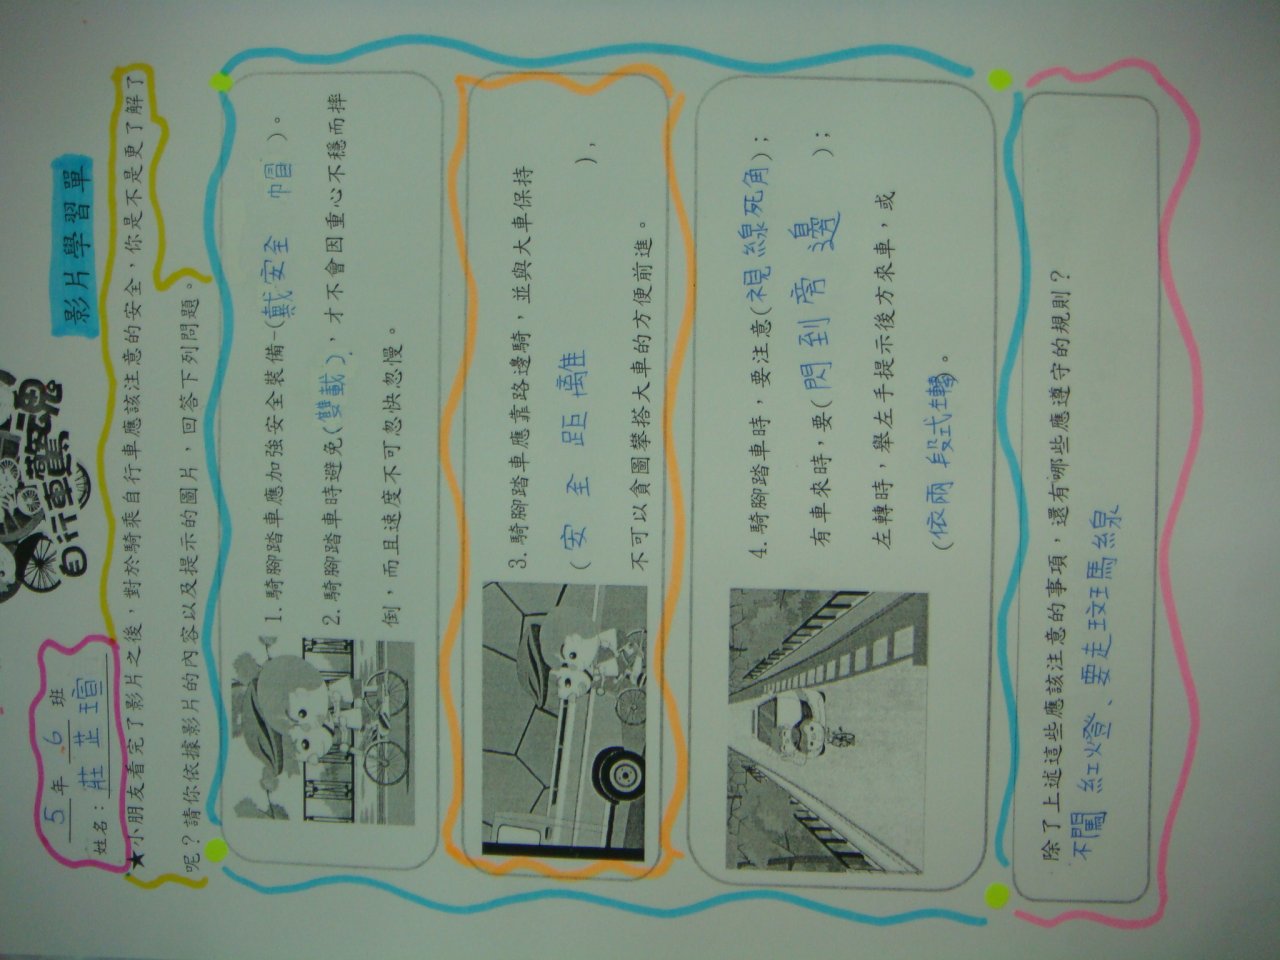 自行車驚魂
影片學習單
5年6班
姓名：莊芷瑄
★小朋友看完了影片之後，對於騎乘自行車應該注意的安全，你是不是更了解了
呢？請你依據影片的內容以及提示的圖片，回答下列問題。
1.騎腳踏車應加強安全裝備-(戴安全帽)。
2.騎腳踏車時避免(雙載)，才不會因重心不穩而摔
倒，而且速度不可忽快忽慢。
3.騎腳踏車應靠路邊騎，並與大車保持
(安全距離)，
不可以貪圖攀搭大車的方便前進。
4.騎腳踏車時，要注意(視線死角)；
有車來時，要(閃到旁邊)；
左轉時，舉左手提示後方來車，或
(依兩段式轉)。
除了上述這些應該注意的事項，還有哪些應遵守的規則？
不闖紅燈、要走斑馬線